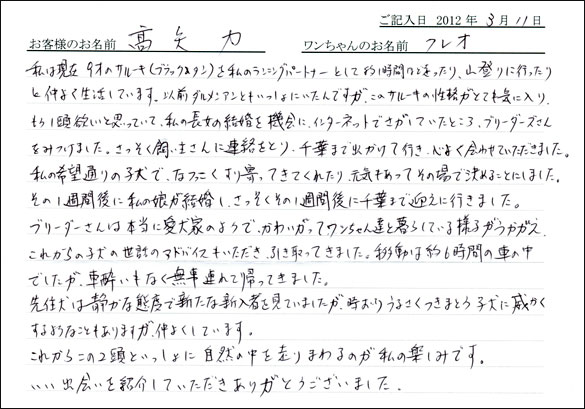 ご記入日 2012年 3月 11日
お客様のお名前 高矢 力 ワンちゃんのお名前 クレオ
私は現在 9才のサルーキ(ブラック&タン)を私のランニングパートナーとして約1時間ほど走ったり、山登りに行ったり
と仲よく生活しています。以前ダルメシアンともいっしょにいたんですが、このサルーキの性格がとても気に入り、
もう1頭欲しいと思っていて、私の長女の結婚を機会に、インターネットでさがしていたところ、ブリーダーズさん
をみつけました。さっそく飼い主さんに連絡をとり、千葉まで出かけて行き、心よく会わせていただきました。
私の希望通りの子犬で、なつっこくすり寄ってきてくれたり、元気もあってその場で決めることにしました。
その1週間後に私の娘が結婚し、さっそくその1週間後に千葉まで迎えに行きました。
ブリーダーさんは本当に愛犬家のようで、かわいがってワンちゃん達と暮らしている様子がうかがえ、
これからの子犬の世話のアドバイスもいただき、引き取ってきました。移動は約6時間の車の中
でしたが、車酔いもなく無事連れて帰ってきました。
先住犬は静かな態度で新たな新入者を見ていましたが、時おりうるさくつきまとう子犬に威かく
するようなこともありますが、仲よくしています。
これからこの2頭といっしょに自然の中を走りまわるのが私の楽しみです。
いい出会いを紹介していただきありがとうございました。